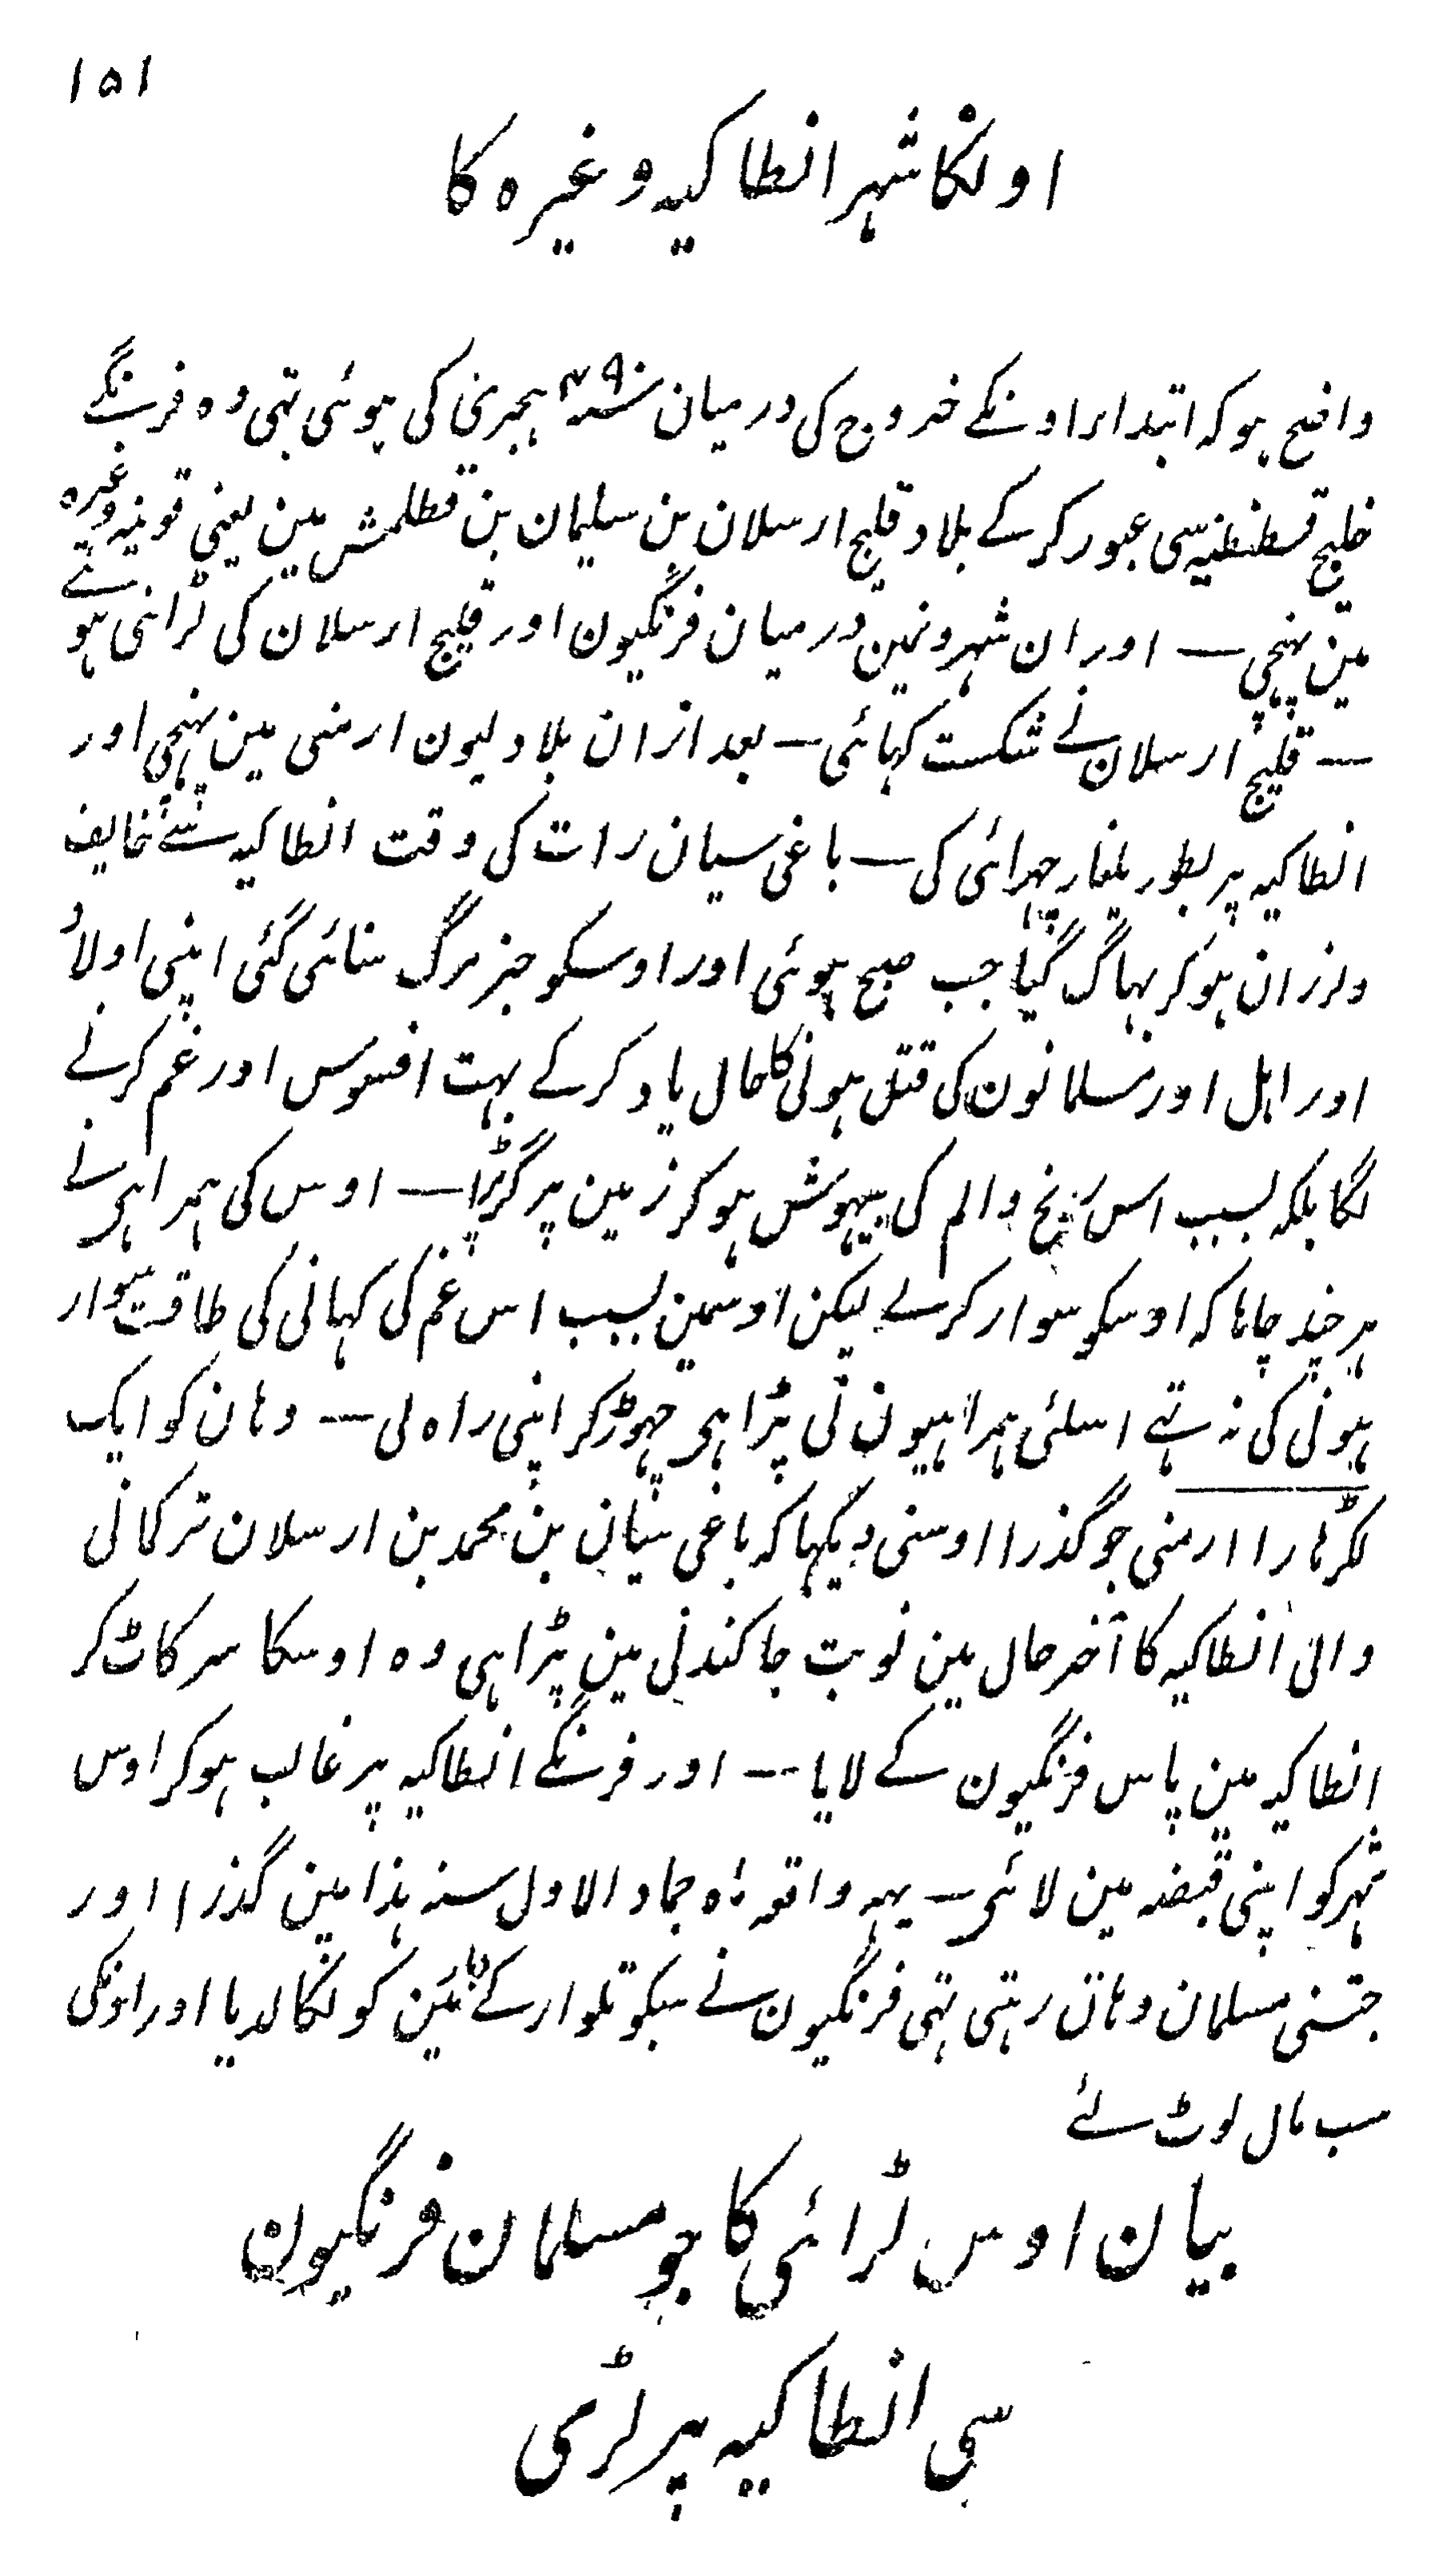 ۱۵۱
اونکا شہر انطاکیہ وغیرہ کا
واضح ہو کہ ابتداء اونکے خروج کی درمیان سنہ ۴۹۰ ہجری کی ہوئی تہی وہ فرنگے
خلیج قسطنطنیہ سی عبور کرکے بلاد قلیج ارسلان بن سلیمان بن قطلمش مین یعنی قونیہ وغیرہ
مین پہنچی — اور ان شہرونمین درمیان فرنگیون اور قلیج ارسلان کی لڑائی ہوتے
— قلیج ارسلان نے شکست کہائی — بعد ازان بلاد لیون ارمنی مین پہنچی اور
انطاکیہ پر بطور یلغار چہرائی کی — باغی سیان رات کی وقت انطاکیہ سے خایف
ولرزان ہو کر بہاگ گیا جب صبح ہوئی اور اوسکو خبر مرگ سنائی گئی اپنی اولاد
اور اہل اور مسلمانون کی قتل ہونی کا حال یاد کرکے بہت افسوس اور غم کرنے
لگا بلکہ بسبب اس رنج والم کی بیہوش ہو کر زمین پر گر پڑا — اوس کی ہمراہی نے
ہر چند چاہا کہ اوسکو سوار کرلے لیکن اوسمین بسبب اس غم کی کہانی کی طاقت سوار
ہونی کی نہ تہے اسلئی ہمراہیون نی پڑا ہی چہوڑ کر اپنی راہ لی — وہان کو ایک
لکڑہارا ارمنی جو گذرا اوسنی دیکہا کہ باغی سیان بن محمد بن ارسلان ترکمانی
والی انطاکیہ کا آخر حال مین نوبت جاکندنی مین پڑا ہی وہ اوسکا سر کاٹ کر
انطاکیہ مین پاس فرنگیون کے لایا — اور فرنگے انطاکیہ پر غالب ہو کر اوس
شہر کو اپنی قبضہ مین لائی — یہہ واقعہ ماہ جماد الاول سنہ ہذا مین گذرا اور
جتنی مسلمان وہان رہتی تہی فرنگیون نے سبکو تلوار کے مین کو نکالدیا اور اونکی
سب مال لوٹ لئے
بیان اوس لڑائی کا جو مسلمان فرنگیون
سی انطاکیہ پر لڑی